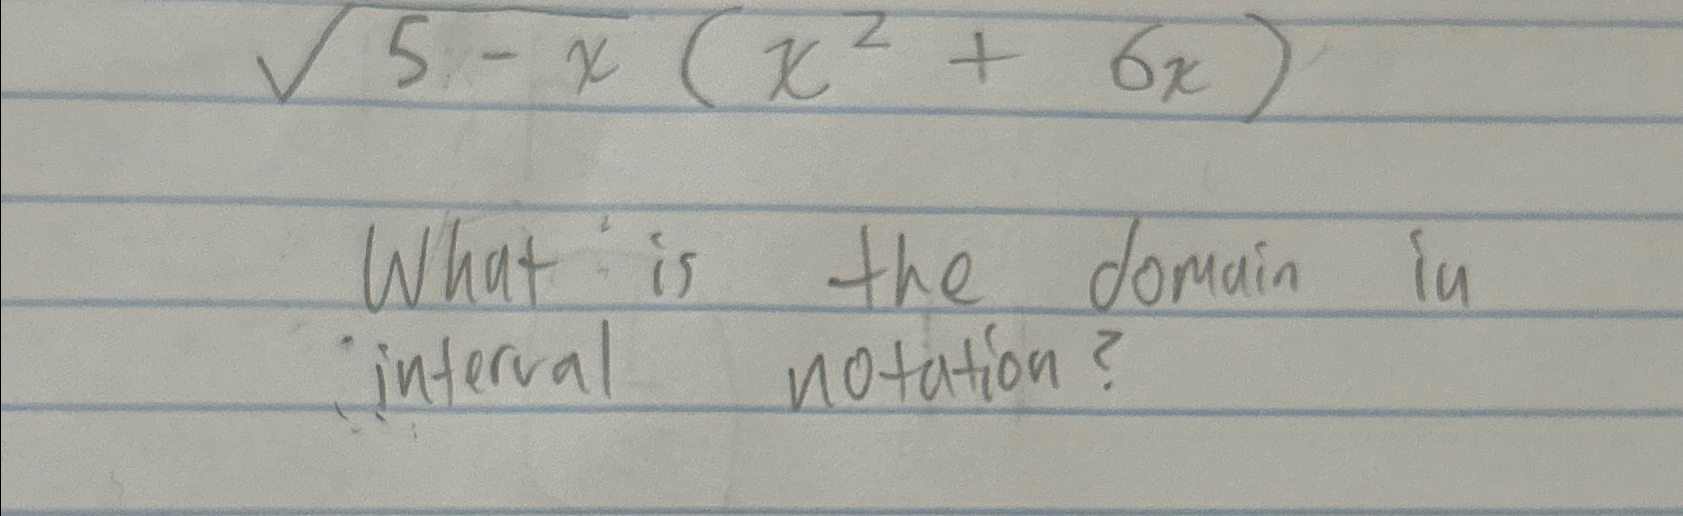 √5 - x (x² + 6x)
What is the domain in
interval notation?